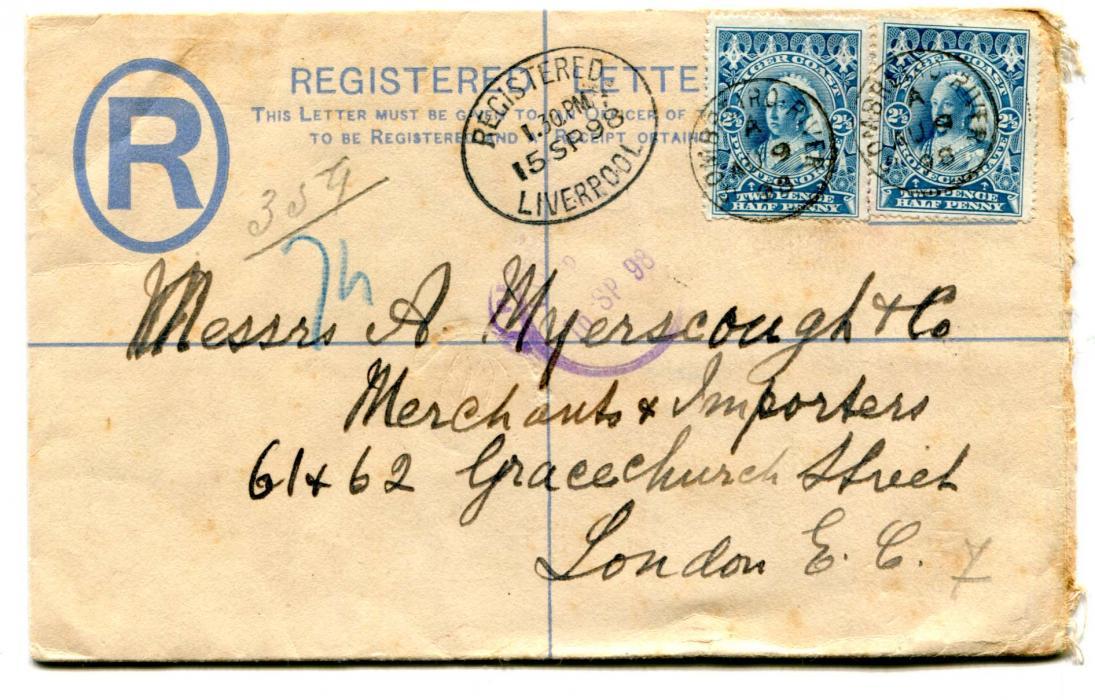 R
REGISTERED LETTE
THIS LETTER MUST BE GI TO AN OFFICER OF
TO BE REGISTERED AND A RECEIPT OBTAIN
REGISTERED
1.30.PM
15 SP 98
LIVERPOOL
NIGER COAST
2½ 2½
PROTECTORATE
TWO PENCE
HALF PENNY
NIGER COAST
2½ 2½
PROTECTORATE
TWO PENCE
HALF PENNY
A
AU 9
98
A
AU 9
98
354
SP 98
Messrs A. Myerscough & Co
Merchants & Importers
61 & 62 Gracechurch Street
London E. C.